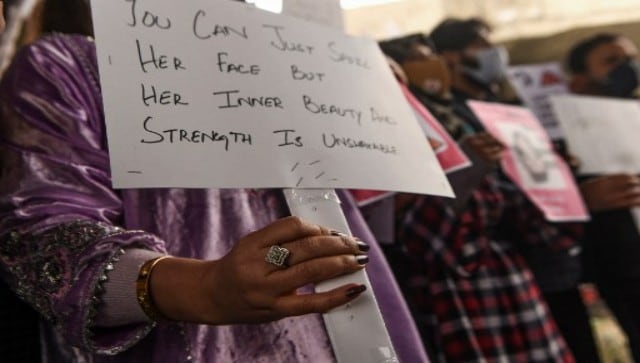 YOU CAN JUST
HER FACE BUT
HER INNER BEAUTY AND
STRENGTH IS UNSHAKABLE